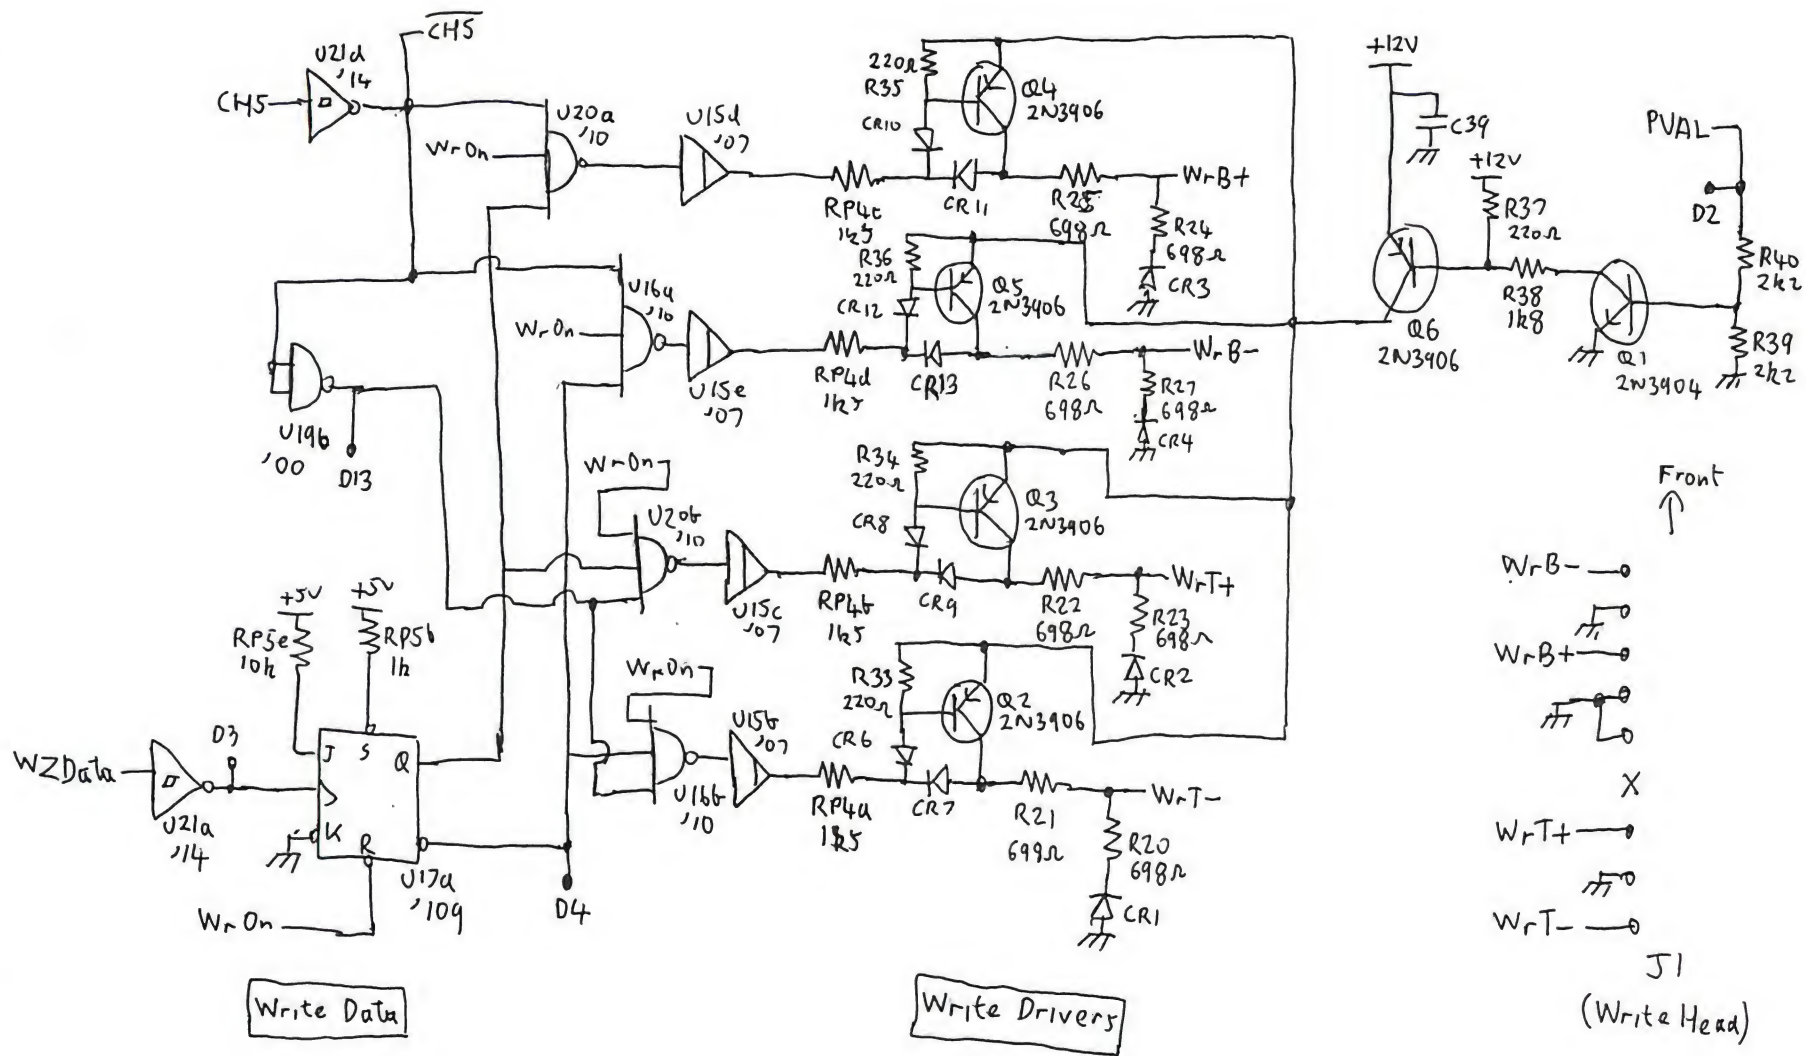 CH5
U21d
'14
CH5
U20a
'10
WrOn
U15d
'07
220Ω
R35
CR10
Q4
2N3906
RP4c
1k5
CR11
R25
698Ω
WrB+
R24
698Ω
CR3
+12V
C39
+12V
R37
220Ω
PVAL
D2
R40
2k2
R38
1k8
Q6
2N3906
Q1
2N3904
R39
2k2
U16a
'10
WrOn
U15e
'07
R36
220Ω
CR12
Q5
2N3906
RP4d
1k5
CR13
R26
698Ω
WrB-
R27
698Ω
CR4
U19b
'00
D13
WrOn
U20b
'10
U15c
'07
R34
220Ω
CR8
Q3
2N3906
RP4b
1k5
CR9
R22
698Ω
WrT+
R23
698Ω
CR2
+5V
RP5e
10k
+5V
RP5b
1k
WrOn
U16b
'10
U15b
'07
R33
220Ω
CR6
Q2
2N3906
RP4a
1k5
CR7
R21
699Ω
WrT-
R20
698Ω
CR1
WZData
U21a
'14
D3
J
S
Q
K
R
U17a
'109
WrOn
D4
Front
WrB-
WrB+
X
WrT+
WrT-
J1
(Write Head)
Write Data
Write Drivers